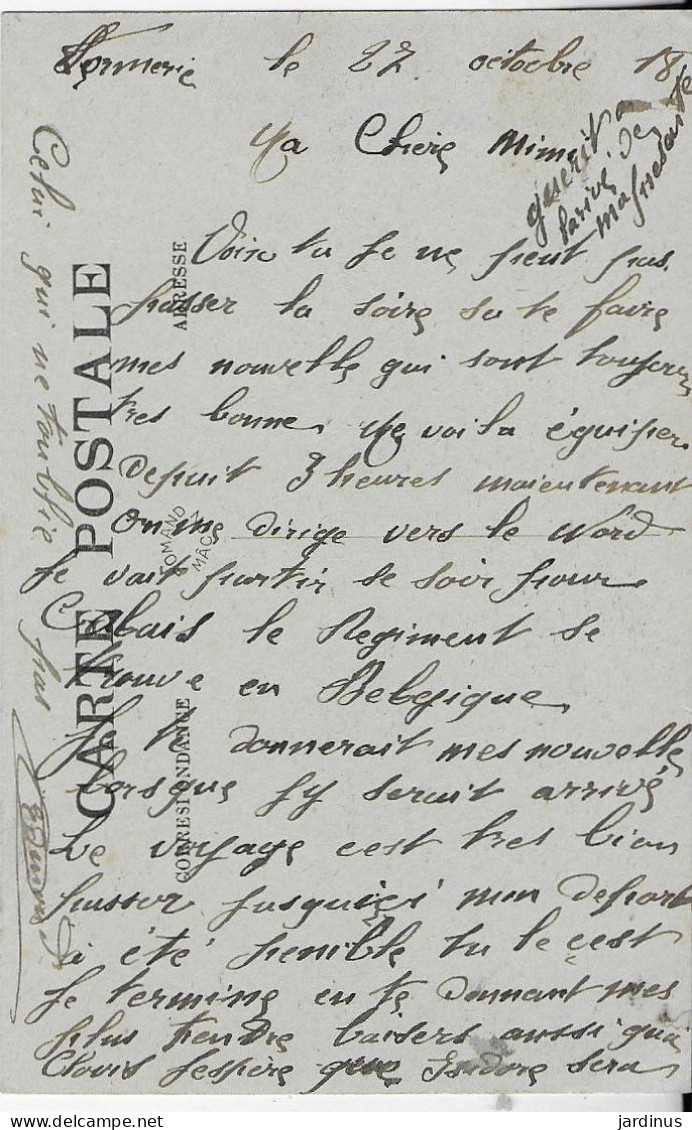 Formerie le 27 octobre 18
Ma Chere Mimi
Voire tu Je ne peut pas
passer la soire sa te faire
mes nouvelle qui sont toujours
tres bonne. Me voila équiper
depuit 3 heures maientenant
On me dirige vers le Nord
Je vait partir se soir pour
Calais le Regiment se
trouve en Belgique
Je te donnerait mes nouvelle
lorsque J'y serait arrivé
Le voyage cest tres bien
passer jusquici mon depart
à été penible tu le cest
Je termine en te donnant mes
plus tendre baisers aussi qua
Clovis J'espère que Isidore sera
guerit a
larivé de
ma presante
Celui qui ne toublie pas
CARTE POSTALE
ADRESSE
CORRESPONDANCE